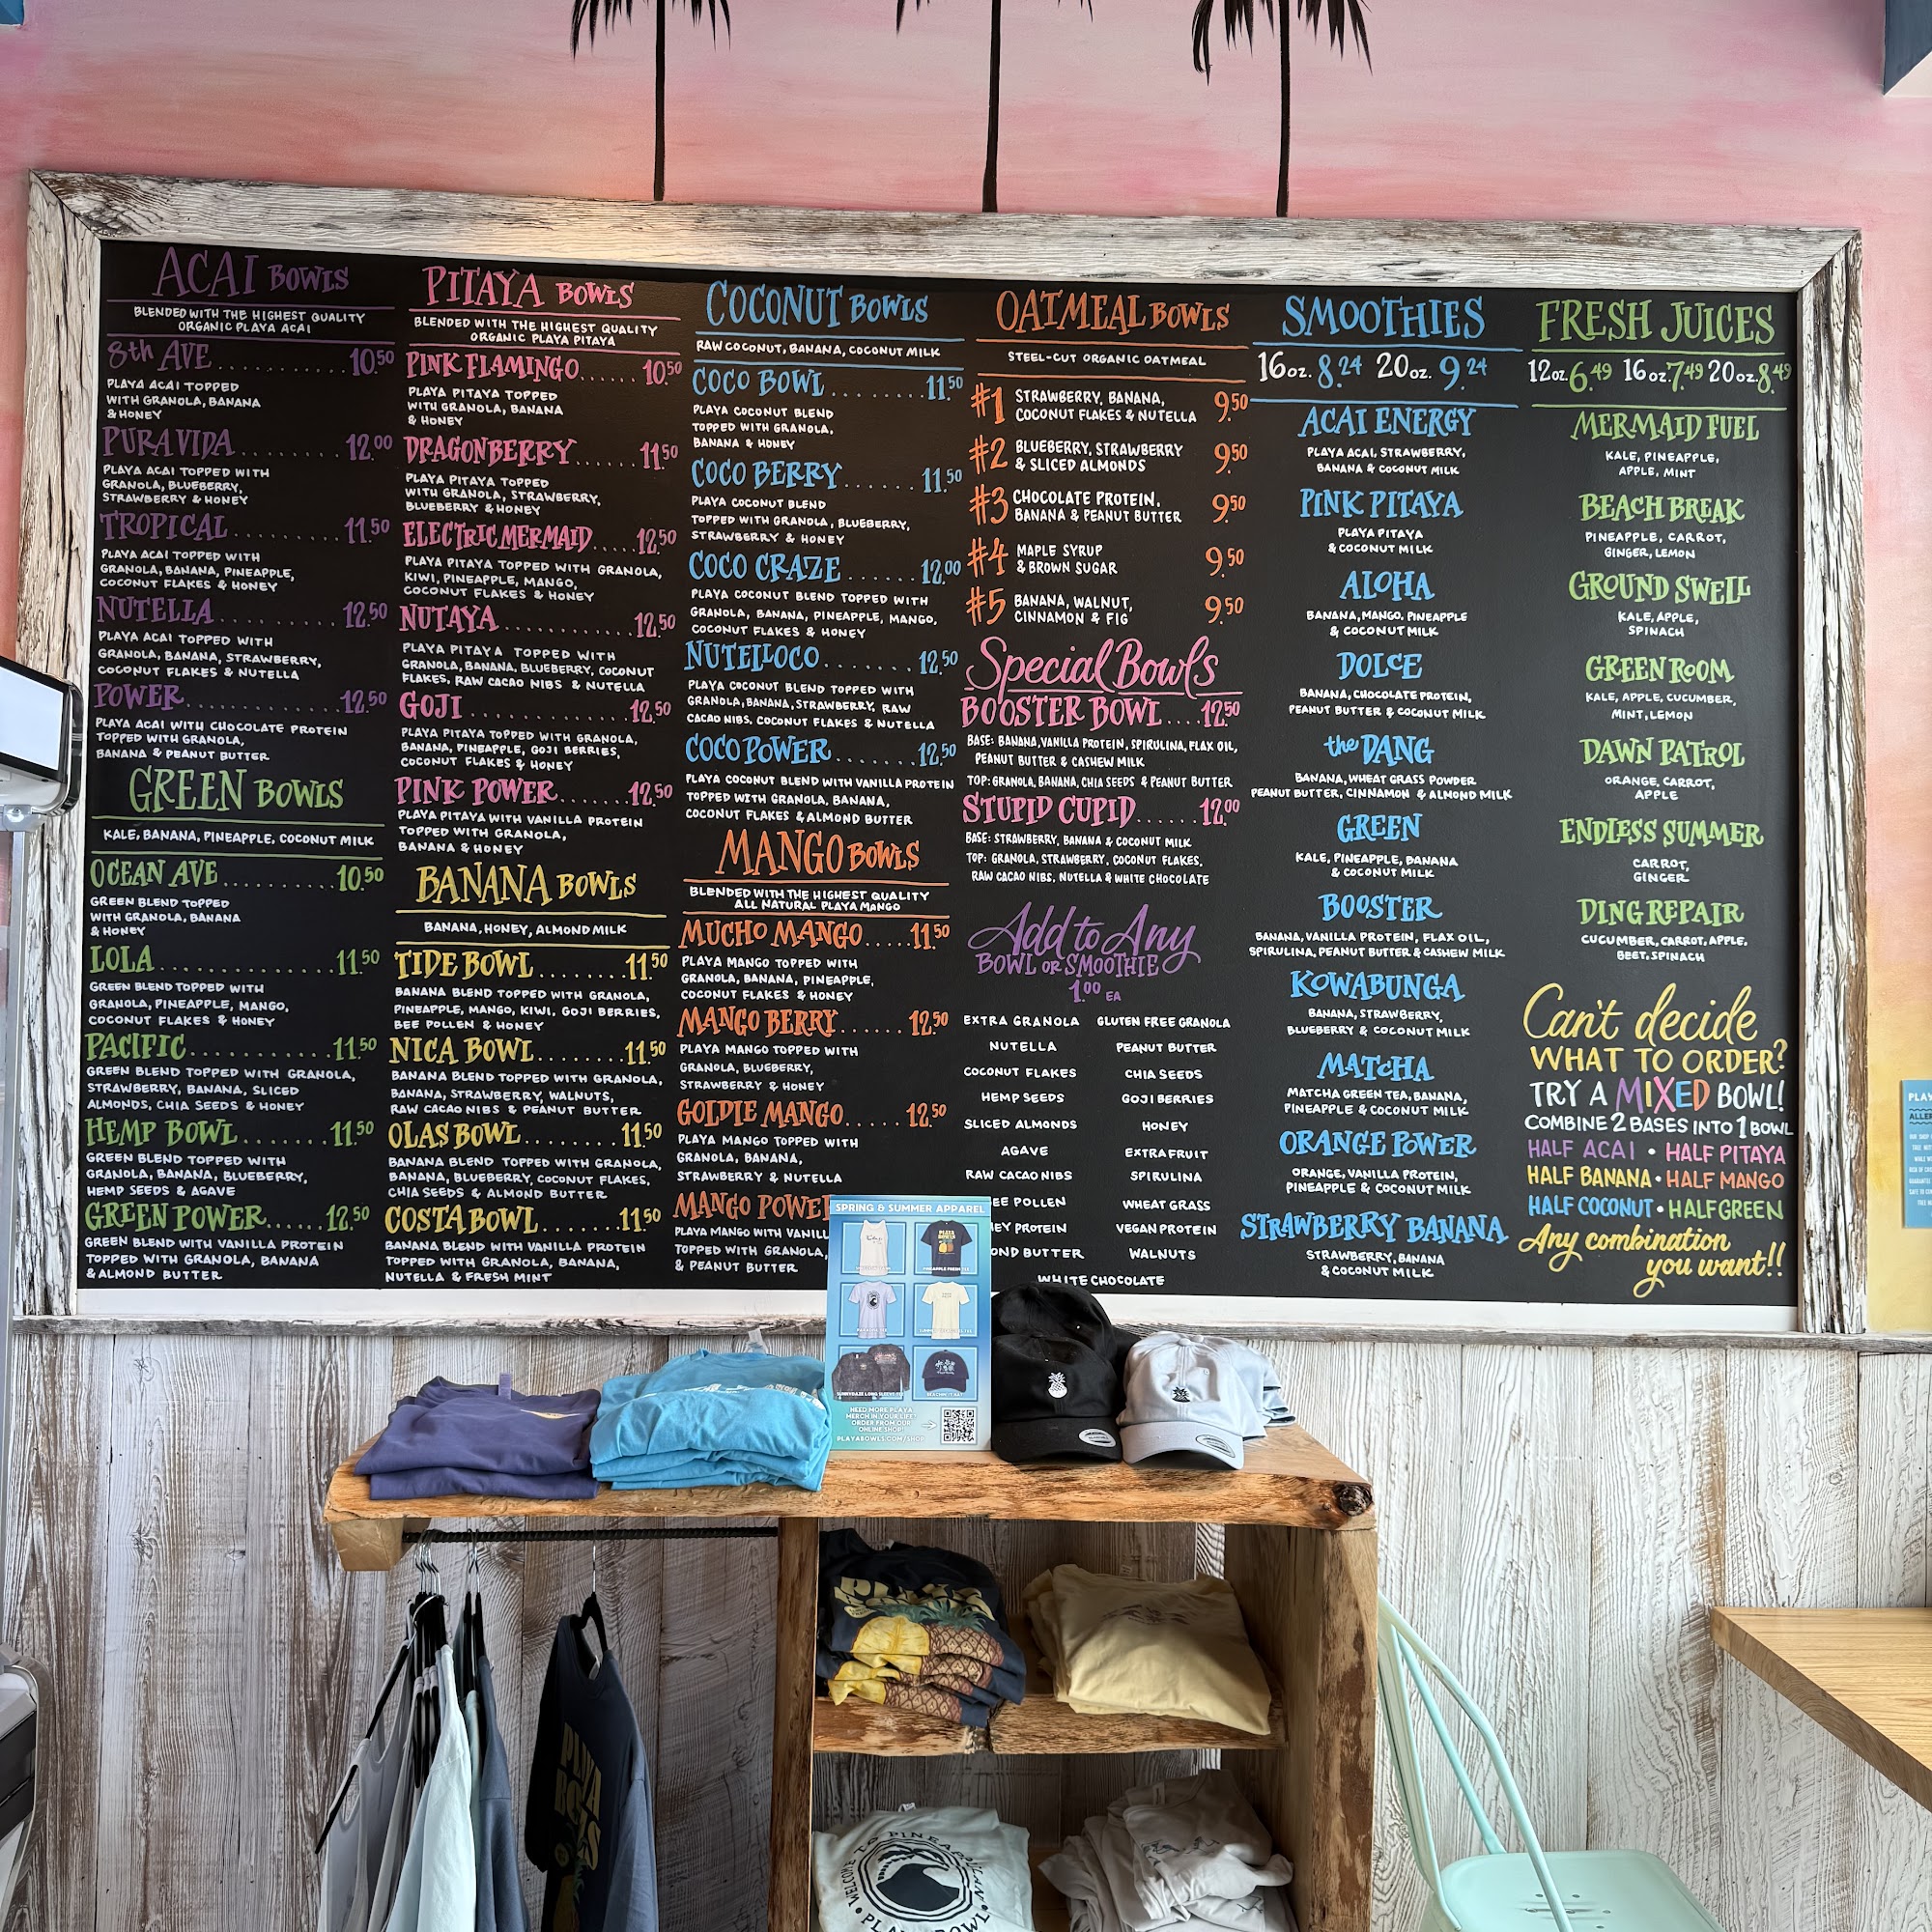 ACAI BOWLS
BLENDED WITH THE HIGHEST QUALITY
ORGANIC PLAYA ACAI
8th AVE..............10.50
PLAYA ACAI TOPPED
WITH GRANOLA, BANANA
& HONEY
PURA VIDA.........12.00
PLAYA ACAI TOPPED WITH
GRANOLA, BLUEBERRY,
STRAWBERRY & HONEY
TROPICAL..........11.50
PLAYA ACAI TOPPED WITH
GRANOLA, BANANA, PINEAPPLE,
COCONUT FLAKES & HONEY
NUTELLA...........12.50
PLAYA ACAI TOPPED WITH
GRANOLA, BANANA, STRAWBERRY,
COCONUT FLAKES & NUTELLA
POWER.............12.50
PLAYA ACAI WITH CHOCOLATE PROTEIN
TOPPED WITH GRANOLA,
BANANA & PEANUT BUTTER
GREEN BOWLS
KALE, BANANA, PINEAPPLE, COCONUT MILK
OCEAN AVE..........10.50
GREEN BLEND TOPPED
WITH GRANOLA, BANANA
& HONEY
LOLA...............11.50
GREEN BLEND TOPPED WITH
GRANOLA, PINEAPPLE, MANGO,
COCONUT FLAKES & HONEY
PACIFIC............11.50
GREEN BLEND TOPPED WITH GRANOLA,
STRAWBERRY, BANANA, SLICED
ALMONDS, CHIA SEEDS & HONEY
HEMP BOWL.........11.50
GREEN BLEND TOPPED WITH
GRANOLA, BANANA, BLUEBERRY,
HEMP SEEDS & AGAVE
GREEN POWER......12.50
GREEN BLEND WITH VANILLA PROTEIN
TOPPED WITH GRANOLA, BANANA
& ALMOND BUTTER
PITAYA BOWLS
BLENDED WITH THE HIGHEST QUALITY
ORGANIC PLAYA PITAYA
PINK FLAMINGO......10.50
PLAYA PITAYA TOPPED
WITH GRANOLA, BANANA
& HONEY
DRAGONBERRY......11.50
PLAYA PITAYA TOPPED
WITH GRANOLA, STRAWBERRY,
BLUEBERRY & HONEY
ELECTRIC MERMAID.....12.50
PLAYA PITAYA TOPPED WITH GRANOLA,
KIWI, PINEAPPLE, MANGO,
COCONUT FLAKES & HONEY
NUTAYA............12.50
PLAYA PITAYA TOPPED WITH
GRANOLA, BANANA, BLUEBERRY, COCONUT
FLAKES, RAW CACAO NIBS & NUTELLA
GOJI..............12.50
PLAYA PITAYA TOPPED WITH GRANOLA,
BANANA, PINEAPPLE, GOJI BERRIES,
COCONUT FLAKES & HONEY
PINK POWER.......12.50
PLAYA PITAYA WITH VANILLA PROTEIN
TOPPED WITH GRANOLA,
BANANA & HONEY
BANANA BOWLS
BANANA, HONEY, ALMOND MILK
TIDE BOWL........11.50
BANANA BLEND TOPPED WITH GRANOLA,
PINEAPPLE, MANGO, KIWI, GOJI BERRIES,
BEE POLLEN & HONEY
NICA BOWL........11.50
BANANA BLEND TOPPED WITH GRANOLA,
BANANA, STRAWBERRY, WALNUTS,
RAW CACAO NIBS & PEANUT BUTTER
OLAS BOWL........11.50
BANANA BLEND TOPPED WITH GRANOLA,
BANANA, BLUEBERRY, COCONUT FLAKES,
CHIA SEEDS & ALMOND BUTTER
COSTA BOWL.......11.50
BANANA BLEND WITH VANILLA PROTEIN
TOPPED WITH GRANOLA, BANANA,
NUTELLA & FRESH MINT
COCONUT BOWLS
RAW COCONUT, BANANA, COCONUT MILK
COCO BOWL.........11.50
PLAYA COCONUT BLEND
TOPPED WITH GRANOLA,
BANANA & HONEY
COCO BERRY.......11.50
PLAYA COCONUT BLEND
TOPPED WITH GRANOLA, BLUEBERRY,
STRAWBERRY & HONEY
COCO CRAZE......12.00
PLAYA COCONUT BLEND TOPPED WITH
GRANOLA, BANANA, PINEAPPLE, MANGO,
COCONUT FLAKES & HONEY
NUTELLOCO.......12.50
PLAYA COCONUT BLEND TOPPED WITH
GRANOLA, BANANA, STRAWBERRY, RAW
CACAO NIBS, COCONUT FLAKES & NUTELLA
COCO POWER......12.50
PLAYA COCONUT BLEND WITH VANILLA PROTEIN
TOPPED WITH GRANOLA, BANANA,
COCONUT FLAKES & ALMOND BUTTER
MANGO BOWLS
BLENDED WITH THE HIGHEST QUALITY
ALL NATURAL PLAYA MANGO
MUCHO MANGO.....11.50
PLAYA MANGO TOPPED WITH
GRANOLA, BANANA, PINEAPPLE,
COCONUT FLAKES & HONEY
MANGO BERRY......12.50
PLAYA MANGO TOPPED WITH
GRANOLA, BLUEBERRY,
STRAWBERRY & HONEY
GOLDIE MANGO.....12.50
PLAYA MANGO TOPPED WITH
GRANOLA, BANANA,
STRAWBERRY & NUTELLA
MANGO POWER
PLAYA MANGO WITH VANILL
TOPPED WITH GRANOLA,
& PEANUT BUTTER
OATMEAL BOWLS
STEEL-CUT ORGANIC OATMEAL
#1 STRAWBERRY, BANANA, 9.50
COCONUT FLAKES & NUTELLA
#2 BLUEBERRY, STRAWBERRY 9.50
& SLICED ALMONDS
#3 CHOCOLATE PROTEIN, 9.50
BANANA & PEANUT BUTTER
#4 MAPLE SYRUP 9.50
& BROWN SUGAR
#5 BANANA, WALNUT, 9.50
CINNAMON & FIG
Special Bowls
BOOSTER BOWL....12.50
BASE: BANANA, VANILLA PROTEIN, SPIRULINA, FLAX OIL,
PEANUT BUTTER & CASHEW MILK
TOP: GRANOLA, BANANA, CHIA SEEDS & PEANUT BUTTER
STUPID CUPID......12.00
BASE: STRAWBERRY, BANANA & COCONUT MILK
TOP: GRANOLA, STRAWBERRY, COCONUT FLAKES,
RAW CACAO NIBS, NUTELLA & WHITE CHOCOLATE
Add to Any
BOWL OR SMOOTHIE
1.00 EA
EXTRA GRANOLA GLUTEN FREE GRANOLA
NUTELLA PEANUT BUTTER
COCONUT FLAKES CHIA SEEDS
HEMP SEEDS GOJI BERRIES
SLICED ALMONDS HONEY
AGAVE EXTRA FRUIT
RAW CACAO NIBS SPIRULINA
EE POLLEN WHEAT GRASS
EY PROTEIN VEGAN PROTEIN
OND BUTTER WALNUTS
WHITE CHOCOLATE
SMOOTHIES
16 oz. 8.24 20 oz. 9.24
ACAI ENERGY
PLAYA ACAI, STRAWBERRY,
BANANA & COCONUT MILK
PINK PITAYA
PLAYA PITAYA
& COCONUT MILK
ALOHA
BANANA, MANGO, PINEAPPLE
& COCONUT MILK
DOLCE
BANANA, CHOCOLATE PROTEIN,
PEANUT BUTTER & COCONUT MILK
the DANG
BANANA, WHEAT GRASS POWDER
PEANUT BUTTER, CINNAMON & ALMOND MILK
GREEN
KALE, PINEAPPLE, BANANA
& COCONUT MILK
BOOSTER
BANANA, VANILLA PROTEIN, FLAX OIL,
SPIRULINA, PEANUT BUTTER & CASHEW MILK
KOWABUNGA
BANANA, STRAWBERRY,
BLUEBERRY & COCONUT MILK
MATCHA
MATCHA GREEN TEA, BANANA,
PINEAPPLE & COCONUT MILK
ORANGE POWER
ORANGE, VANILLA PROTEIN,
PINEAPPLE & COCONUT MILK
STRAWBERRY BANANA
STRAWBERRY, BANANA
& COCONUT MILK
FRESH JUICES
12 oz. 6.49 16 oz. 7.49 20 oz. 8.49
MERMAID FUEL
KALE, PINEAPPLE,
APPLE, MINT
BEACH BREAK
PINEAPPLE, CARROT,
GINGER, LEMON
GROUND SWELL
KALE, APPLE,
SPINACH
GREEN ROOM
KALE, APPLE, CUCUMBER,
MINT, LEMON
DAWN PATROL
ORANGE, CARROT,
APPLE
ENDLESS SUMMER
CARROT,
GINGER
DING REPAIR
CUCUMBER, CARROT, APPLE,
BEET, SPINACH
Can't decide
WHAT TO ORDER?
TRY A MIXED BOWL!
COMBINE 2 BASES INTO 1 BOWL
HALF ACAI • HALF PITAYA
HALF BANANA • HALF MANGO
HALF COCONUT • HALF GREEN
Any combination
you want!!
SPRING & SUMMER APPAREL
NEED MORE PLAYA
MERCH IN YOUR LIFE?
ORDER FROM OUR
ONLINE SHOP!
PLAYABOWLS.COM/SHOP
PLAY
ALLER
PLAYA
BOWLS
WELCOME TO PINEAPPLELAND